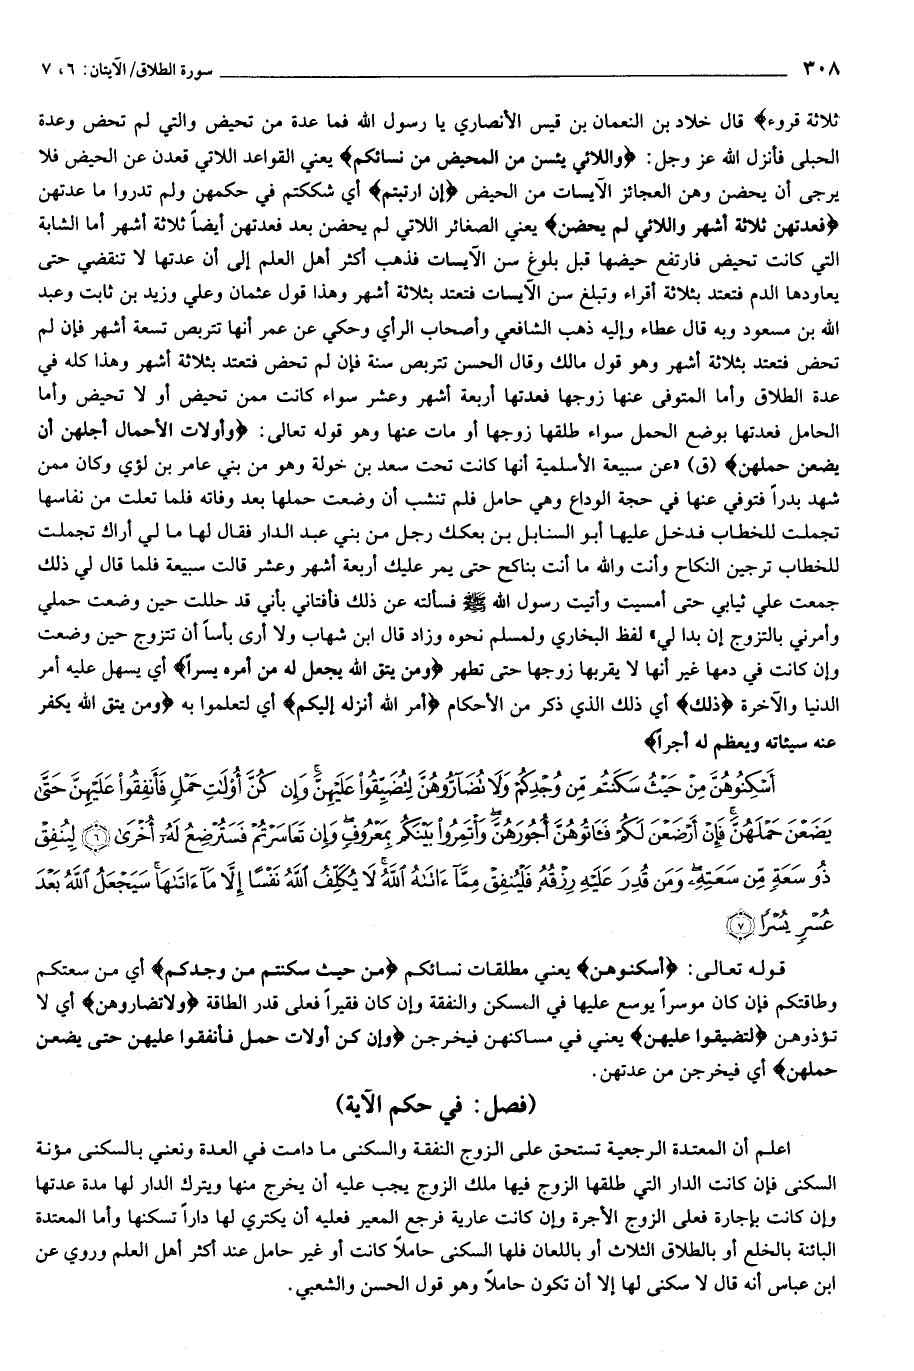 ٣٠٨ سورة الطلاق/ الآيتان: ٦، ٧
ثلاثة قروء﴾ قال خلاد بن النعمان بن قيس الأنصاري يا رسول الله فما عدة من تحيض والتي لم تحض وعدة
الحبلى فأنزل الله عز وجل: ﴿واللائي يئسن من المحيض من نسائكم﴾ يعني القواعد اللاتي قعدن عن الحيض فلا
يرجى أن يحضن وهن العجائز الآيسات من الحيض ﴿إن ارتبتم﴾ أي شككتم في حكمهن ولم تدروا ما عدتهن
﴿فعدتهن ثلاثة أشهر واللائي لم يحضن﴾ يعني الصغائر اللاتي لم يحضن بعد فعدتهن أيضاً ثلاثة أشهر أما الشابة
التي كانت تحيض فارتفع حيضها قبل بلوغ سن الآيسات فذهب أكثر أهل العلم إلى أن عدتها لا تنقضي حتى
يعاودها الدم فتعتد بثلاثة أقراء وتبلغ سن الآيسات فتعتد بثلاثة أشهر وهذا قول عثمان وعلي وزيد بن ثابت وعبد
الله بن مسعود وبه قال عطاء وإليه ذهب الشافعي وأصحاب الرأي وحكي عن عمر أنها تتربص تسعة أشهر فإن لم
تحض فتعتد بثلاثة أشهر وهو قول مالك وقال الحسن تتربص سنة فإن لم تحض فتعتد بثلاثة أشهر وهذا كله في
عدة الطلاق وأما المتوفى عنها زوجها فعدتها أربعة أشهر وعشر سواء كانت ممن تحيض أو لا تحيض وأما
الحامل فعدتها بوضع الحمل سواء طلقها زوجها أو مات عنها وهو قوله تعالى: ﴿وأولات الأحمال أجلهن أن
يضعن حملهن﴾ (ق) «عن سبيعة الأسلمية أنها كانت تحت سعد بن خولة وهو من بني عامر بن لؤي وكان ممن
شهد بدراً فتوفي عنها في حجة الوداع وهي حامل فلم تنشب أن وضعت حملها بعد وفاته فلما تعلت من نفاسها
تجملت للخطاب فدخل عليها أبو السنابل بن بعكك رجل من بني عبد الدار فقال لها ما لي أراك تجملت
للخطاب ترجين النكاح وأنت والله ما أنت بناكح حتى يمر عليك أربعة أشهر وعشر قالت سبيعة فلما قال لي ذلك
جمعت علي ثيابي حتى أمسيت وأتيت رسول الله ﷺ فسألته عن ذلك فأفتاني بأني قد حللت حين وضعت حملي
وأمرني بالتزوج إن بدا لي» لفظ البخاري ولمسلم نحوه وزاد قال ابن شهاب ولا أرى بأساً أن تتزوج حين وضعت
وإن كانت في دمها غير أنها لا يقربها زوجها حتى تطهر ﴿ومن يتق الله يجعل له من أمره يسراً﴾ أي يسهل عليه أمر
الدنيا والآخرة ﴿ذلك﴾ أي ذلك الذي ذكر من الأحكام ﴿أمر الله أنزله إليكم﴾ أي لتعلموا به ﴿ومن يتق الله يكفر
عنه سيئاته ويعظم له أجراً﴾
أَسْكِنُوهُنَّ مِنْ حَيْثُ سَكَنتُم مِّن وُجْدِكُمْ وَلَا تُضَآرُّوهُنَّ لِتُضَيِّقُواْ عَلَيْهِنَّۚ وَإِن كُنَّ أُوْلَٰتِ حَمْلٍ فَأَنفِقُواْ عَلَيْهِنَّ حَتَّىٰ
يَضَعْنَ حَمْلَهُنَّۚ فَإِنْ أَرْضَعْنَ لَكُمْ فَـَٔاتُوهُنَّ أُجُورَهُنَّۖ وَأْتَمِرُواْ بَيْنَكُم بِمَعْرُوفٍۖ وَإِن تَعَاسَرْتُمْ فَسَتُرْضِعُ لَهُۥٓ أُخْرَىٰ ﴿٦﴾ لِيُنفِقْ
ذُو سَعَةٍ مِّن سَعَتِهِۦۖ وَمَن قُدِرَ عَلَيْهِ رِزْقُهُۥ فَلْيُنفِقْ مِمَّآ ءَاتَىٰهُ ٱللَّهُۚ لَا يُكَلِّفُ ٱللَّهُ نَفْسًا إِلَّا مَآ ءَاتَىٰهَاۚ سَيَجْعَلُ ٱللَّهُ بَعْدَ
عُسْرٍ يُسْرًا ﴿٧﴾
قوله تعالى: ﴿أسكنوهن﴾ يعني مطلقات نسائكم ﴿من حيث سكنتم من وجدكم﴾ أي من سعتكم
وطاقتكم فإن كان موسراً يوسع عليها في المسكن والنفقة وإن كان فقيراً فعلى قدر الطاقة ﴿ولاتضاروهن﴾ أي لا
تؤذوهن ﴿لتضيقوا عليهن﴾ يعني في مساكنهن فيخرجن ﴿وإن كن أولات حمل فأنفقوا عليهن حتى يضعن
حملهن﴾ أي فيخرجن من عدتهن.
(فصل: في حكم الآية)
اعلم أن المعتدة الرجعية تستحق على الزوج النفقة والسكنى ما دامت في العدة ونعني بالسكنى مؤنة
السكنى فإن كانت الدار التي طلقها الزوج فيها ملك الزوج يجب عليه أن يخرج منها ويترك الدار لها مدة عدتها
وإن كانت بإجارة فعلى الزوج الأجرة وإن كانت عارية فرجع المعير فعليه أن يكتري لها داراً تسكنها وأما المعتدة
البائنة بالخلع أو بالطلاق الثلاث أو باللعان فلها السكنى حاملاً كانت أو غير حامل عند أكثر أهل العلم وروي عن
ابن عباس أنه قال لا سكنى لها إلا أن تكون حاملاً وهو قول الحسن والشعبي.